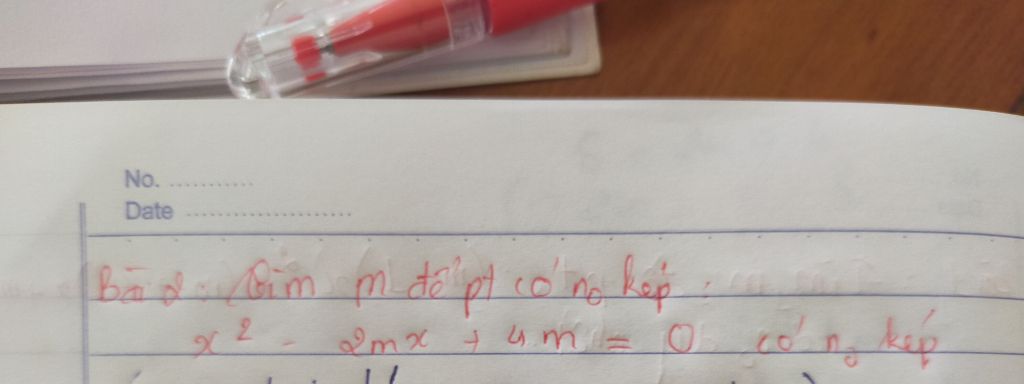 No. ...........
Date .....................
Bài 2: Tìm m để pt có n₀ kép:
x² - 2mx + 4m = 0 có n₀ kép